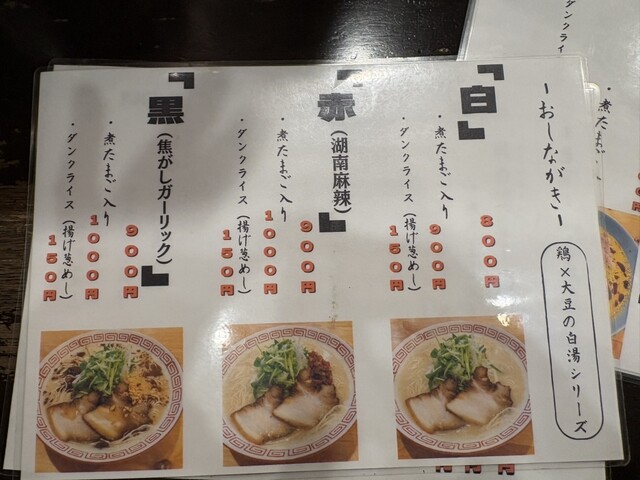 ーおしながきー
鶏×大豆の白湯シリーズ
「白」
800円
・煮たまご入り
900円
・ダンクライス(揚げ葱めし)
150円
「赤(湖南麻辣)」
900円
・煮たまご入り
1000円
・ダンクライス(揚げ葱めし)
150円
「黒(焦がしガーリック)」
900円
・煮たまご入り
1000円
・ダンクライス(揚げ葱めし)
150円
・ダンクライ
・煮た